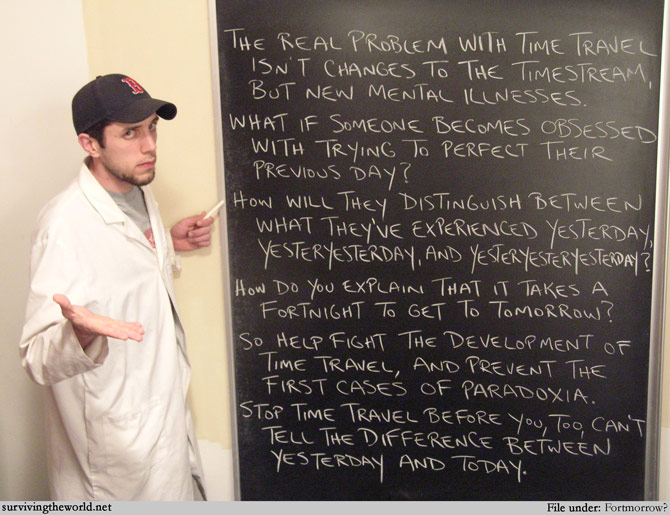 THE REAL PROBLEM WITH TIME TRAVEL
ISN'T CHANGES TO THE TIMESTREAM,
BUT NEW MENTAL ILLNESSES.
WHAT IF SOMEONE BECOMES OBSESSED
WITH TRYING TO PERFECT THEIR
PREVIOUS DAY?
HOW WILL THEY DISTINGUISH BETWEEN
WHAT THEY'VE EXPERIENCED YESTERDAY,
YESTERYESTERDAY, AND YESTERYESTERYESTERDAY?
HOW DO YOU EXPLAIN THAT IT TAKES A
FORTNIGHT TO GET TO TOMORROW?
SO HELP FIGHT THE DEVELOPMENT OF
TIME TRAVEL, AND PREVENT THE
FIRST CASES OF PARADOXIA.
STOP TIME TRAVEL BEFORE YOU, TOO, CAN'T
TELL THE DIFFERENCE BETWEEN
YESTERDAY AND TODAY.
B
survivingtheworld.net
File under: Fortmorrow?